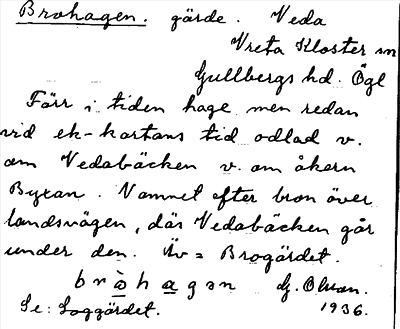 Brohagen. gärde. Veda
Vreta Kloster sn
Gullbergs hd. Ögl
Förr i tiden hage men redan
vid ek-kartans tid odlad v.
om Vedabäcken v. om åkern
Byxan. Namnet efter bron över
landsvägen, där Vedabäcken går
under den. Äv = Brogärdet.
bròhagən G. Olson.
Se: Loggärdet. 1936.